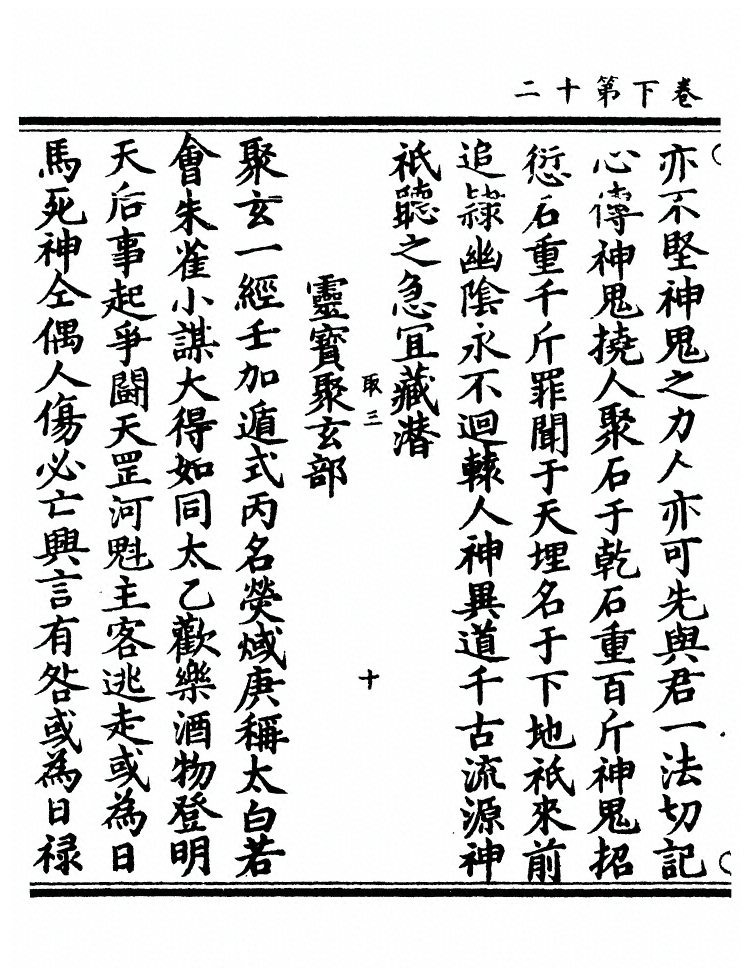 卷下第十二
亦不堅神鬼之力人亦可先與君一法切記
心傳神鬼撓人聚石于乾石重百斤神鬼招
愆石重千斤罪聞于天埋名于下地祇來前
追隷幽陰永不迴轅人神異道千古流源神
祇聽之急冝藏潜
取三
十
靈寳聚玄部
聚玄一經壬加遁式丙名熒惑庚稱太白若
會朱雀小謀大得如同太乙歡樂酒物登明
天后事起爭鬪天罡河魁主客逃走或為日
馬死神仝偶人傷必亡興言有咎或為日禄